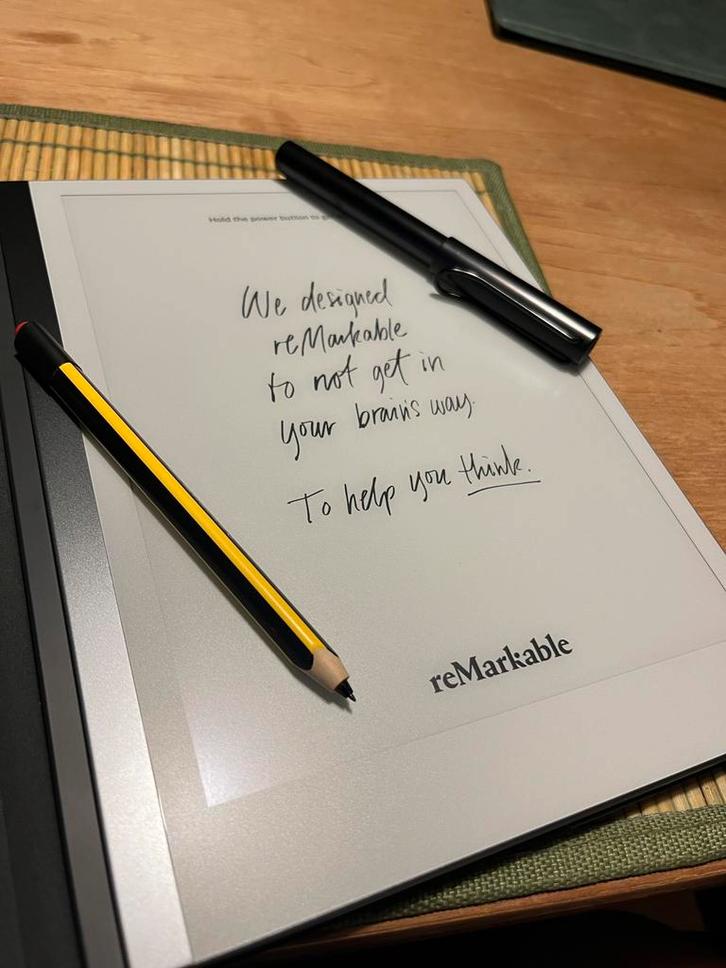 Hold the power button to
We designed
reMarkable
to not get in
your brain's way.
To help you think.
reMarkable